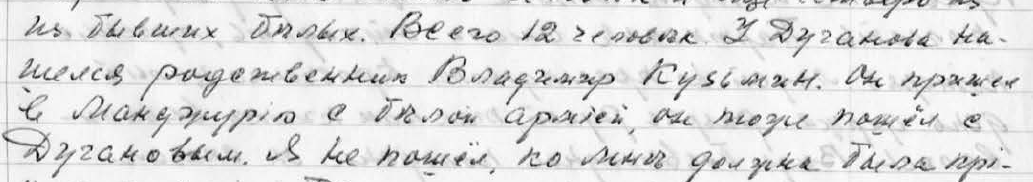 из бывших бѣлых. Всего 12 человѣк. У Дуганова на-
шелся родственник Владимир Кузьмин. Он пришел
в Манджурію с бѣлой арміей, он тоже пошёл с
Дугановым. Я не пошёл, ко мнѣ должна была прі-